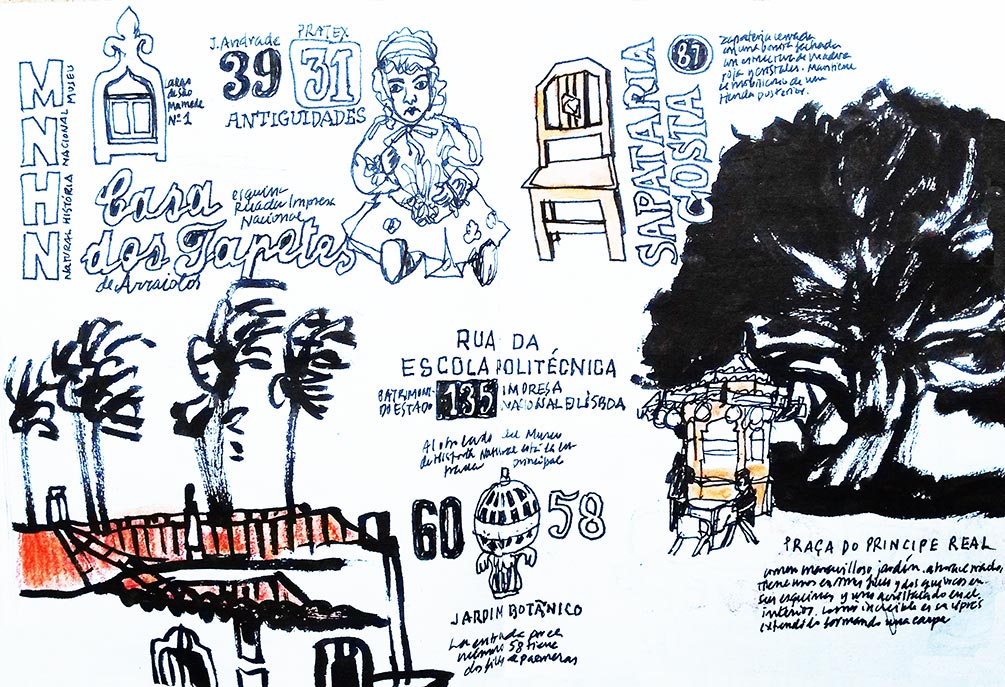 MNHN
MUSEU
NACIONAL
HISTÓRIA
NATURAL
LARGO
DE SÃO
Mamede
Nº 1
J. Andrade
39
PRATEX
31
ANTIGUIDADES
Casa
dos Tapetes
de Arraiolos
esquina
Rua da Imprensa
Nacional
SAPATARIA
COSTA
87
zapatería cerrada
con una bonita fachada
con estructura de madera
roja y cristales. Mantiene
el mobiliario de una
tienda posterior.
RUA DA
ESCOLA POLITÉCNICA
PATRIMONI
DO ESTADO
135
IMPRESA
NACIONAL E LISBOA
Al otro lado del Museu
de Historia Natural está la en
trada principal
60
58
JARDIN BOTÂNICO
La entrada por el
número 58 tiene
dos filas de palmeras
PRAÇA DO PRINCIPE REAL
con un maravilloso jardín. ahora cerrados
tiene unos y dos quioscos en
sus esquinas y uno acristalado en el
interior. Lo más increíble es el ciprés
extendido formando una carpa